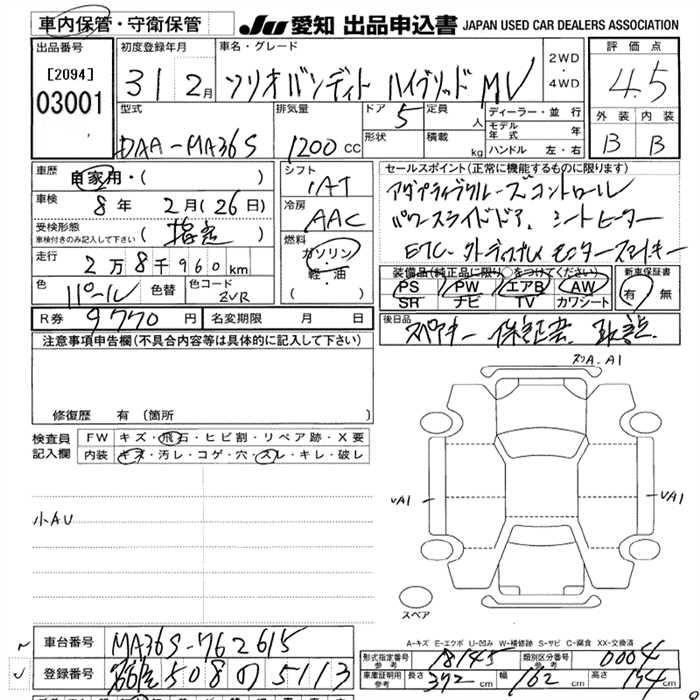 車内保管・守衛保管
JU 愛知 出品申込書 JAPAN USED CAR DEALERS ASSOCIATION
出品番号
[2094]
03001
初度登録年月
31 2月
車名・グレード
ソリオバンディト ハイブリッド MV
2WD
・
4WD
評価点
4.5
外装 内装
B B
型式
DAA-MA36S
排気量
1200 CC
ドア 5
形状
定員 人
積載 kg
ディーラー・並行
モデル年式 年
ハンドル 左・右
車歴
自家用・( )
車検
8年 2月(26日)
受検形態
車検付きのみ記入して下さい
(指定)
走行
2万8千960km
色 パール 色替
色コード
ZVR
シフト
IAT
冷房
AAC
燃料
ガソリン
・
軽・油
セールスポイント(正常に機能するものに限ります)
アダプティブクルーズコントロール
パワースライドドア、シートヒーター
ETC
スマートキー
装備品(純正品に限り○をつけてください)
PS PW エアB AW
SR ナビ TV カワシート
新車保証書
有・無
R券 9770円
名変期限 月 日
後日品
スペアキー 保証書 取説
注意事項申告欄(不具合内容等は具体的に記入して下さい)
修復歴 有(箇所
検査員
記入欄
FW キズ・飛石・ヒビ割・リペア跡・X要
内装 キズ・汚レ・コゲ・穴・スレ・キレ・破レ
小AU
A1
A1
A1
スペア
A-キズ E-エクボ U-凹み W-補修跡 S-サビ C-腐食 XX-交換済
車台番号
MA36S-762615
登録番号
508 の 5113
形式指定番号
参考
18145
類別区分番号
参考
0004
車庫証明用
参考
長さ 372 cm
幅 162 cm
高さ 174 cm